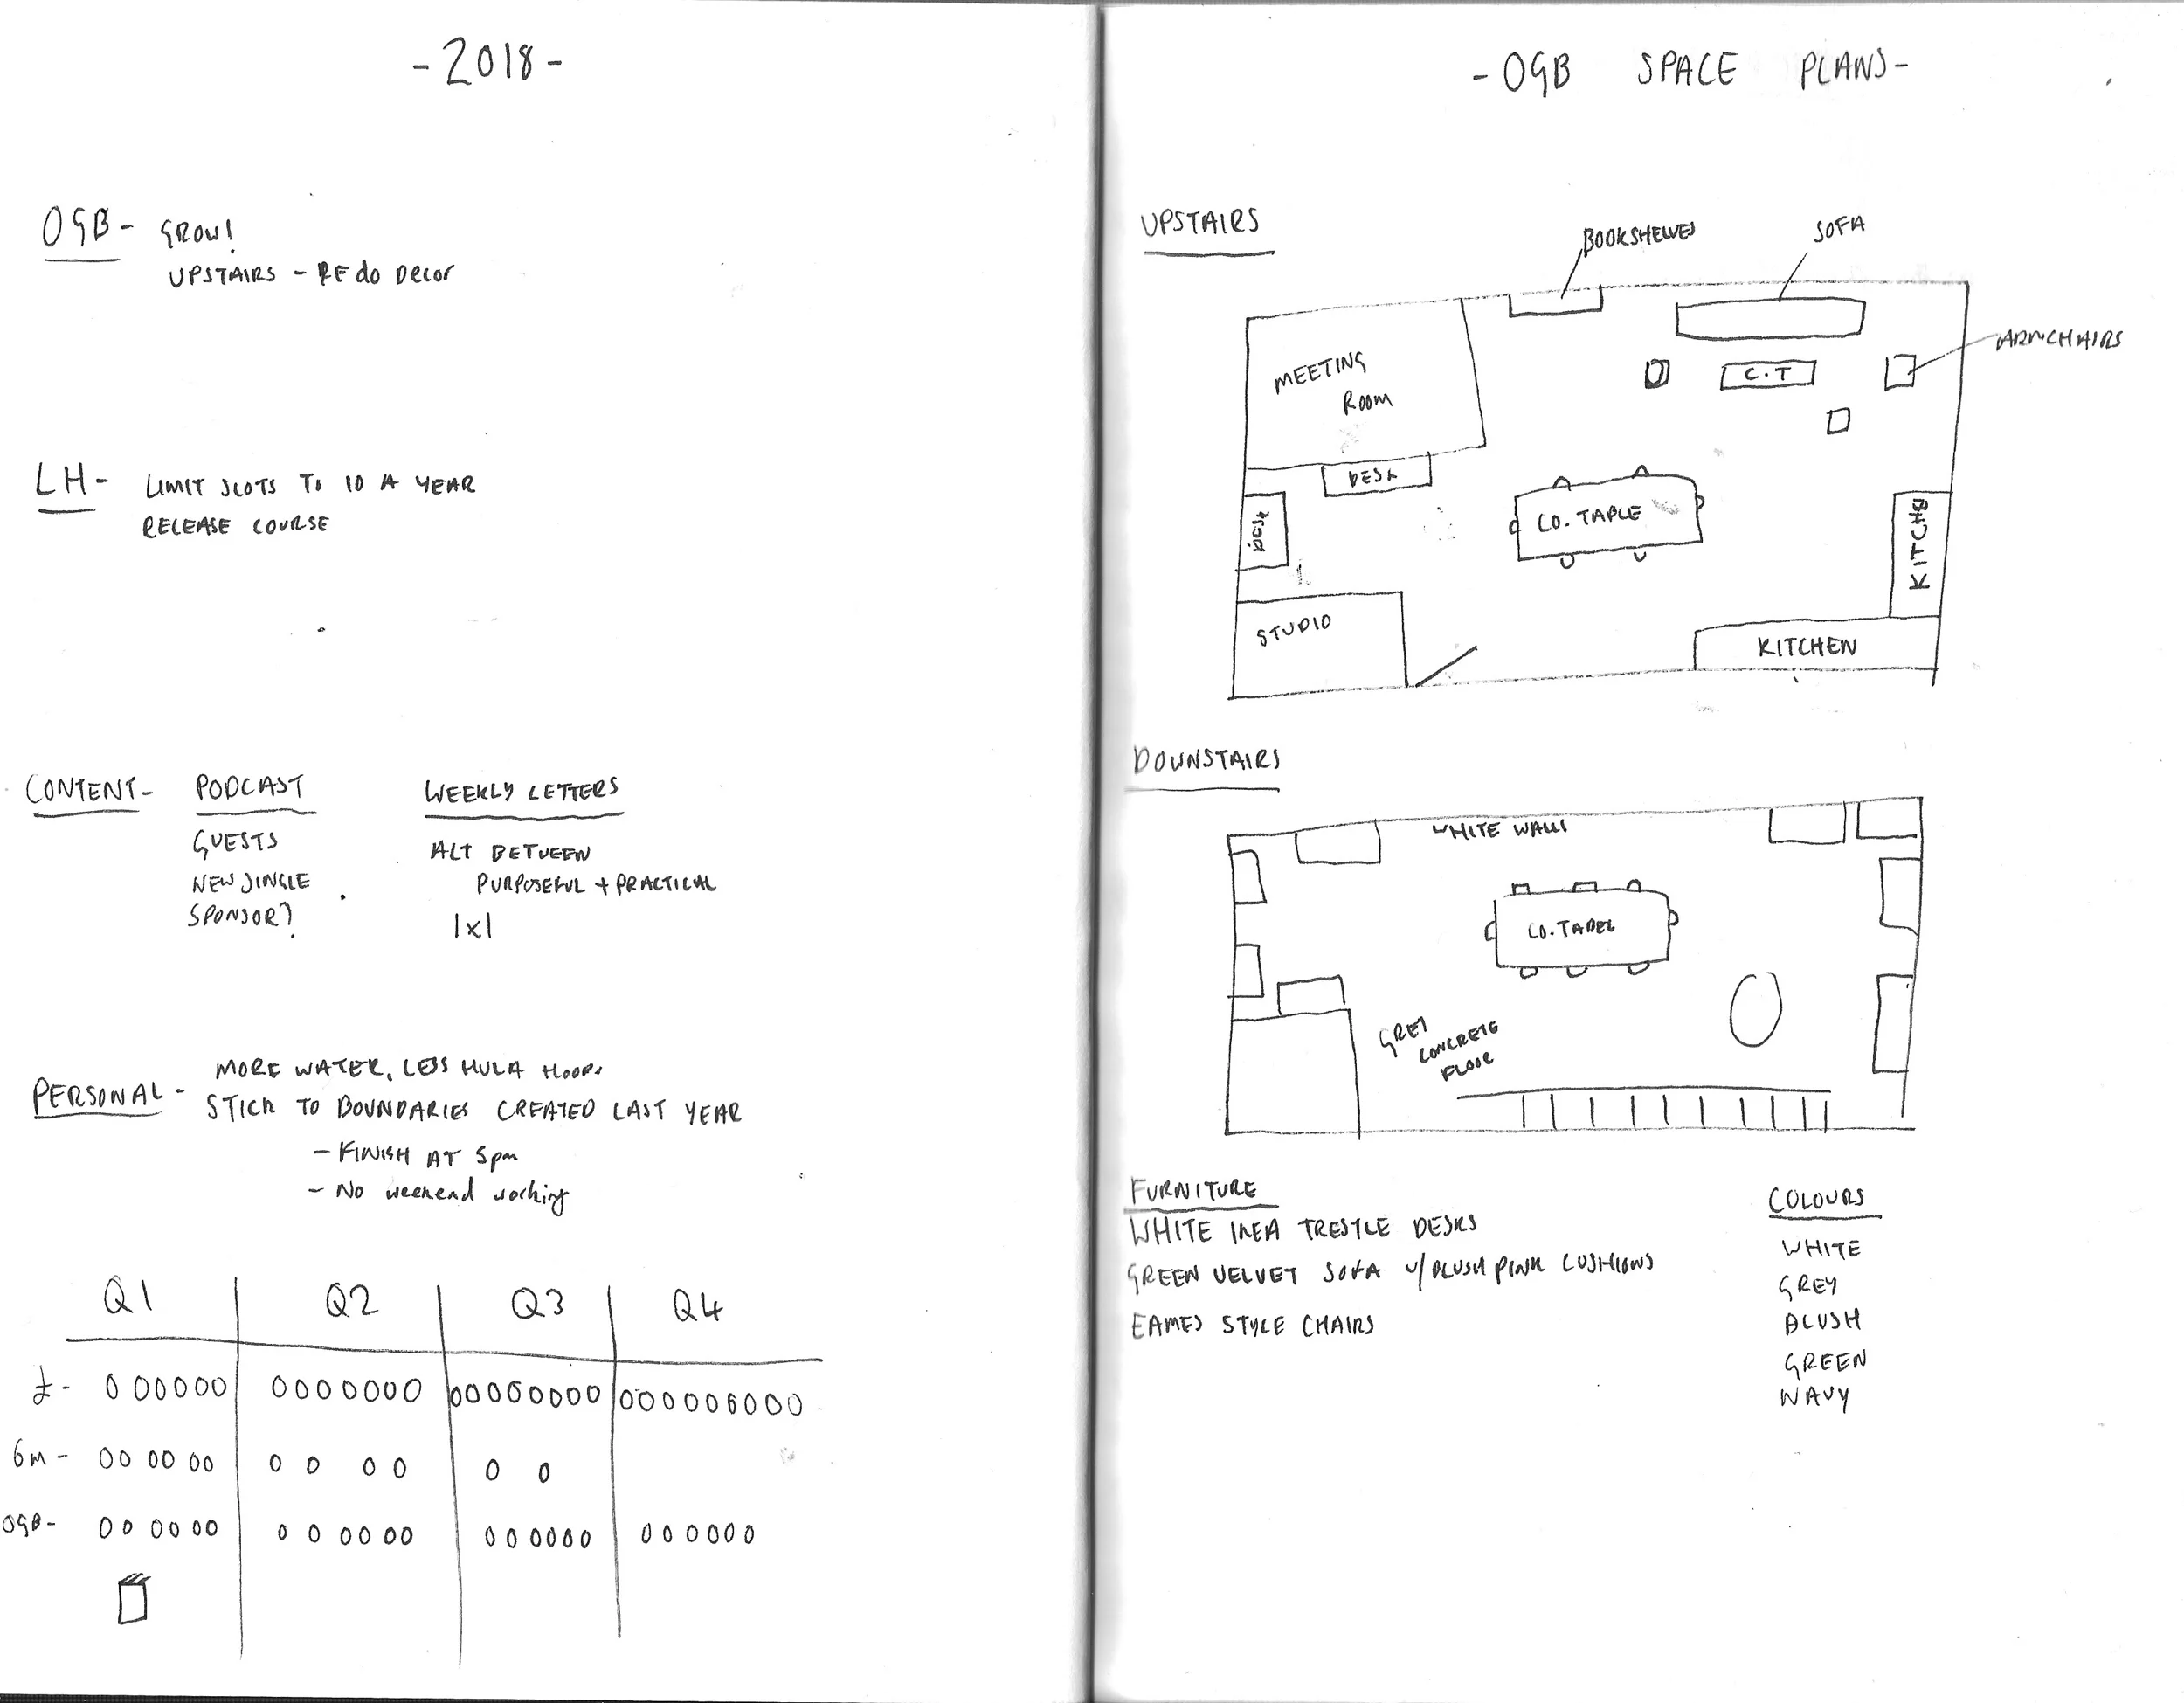 -2018-
OGB- GROW!
UPSTAIRS - REdo Decor
LH- LIMIT SLOTS TO 10 A YEAR
RELEASE COURSE
CONTENT- PODCAST
GUESTS
NEW JINGLE
SPONSOR?
WEEKLY LETTERS
ALT BETWEEN
PURPOSEFUL + PRACTICAL
1x1
PERSONAL- MORE WATER, LESS HULA HOOPS
STICK TO BOUNDARIES CREATED LAST YEAR
- FINISH AT 5pm
- No weekend working
Q1 Q2 Q3 Q4
£- 000000 0000000 00000000 000000000
6m- 000000 0000 00
OGB- 000000 000000 000000 000000
-OGB SPACE PLANS-
UPSTAIRS
BOOKSHELVES
SOFA
ARMCHAIRS
MEETING
ROOM
C.T
DESK
DESK
CO. TABLE
KITCHEN
STUDIO
KITCHEN
DOWNSTAIRS
WHITE WALLS
CO. TABEL
GREY
CONCRETE
FLOOR
FURNITURE
WHITE IKEA TRESTLE DESKS
GREEN VELVET SOFA w/BLUSH PINK CUSHIONS
EAMES STYLE CHAIRS
COLOURS
WHITE
GREY
BLUSH
GREEN
NAVY